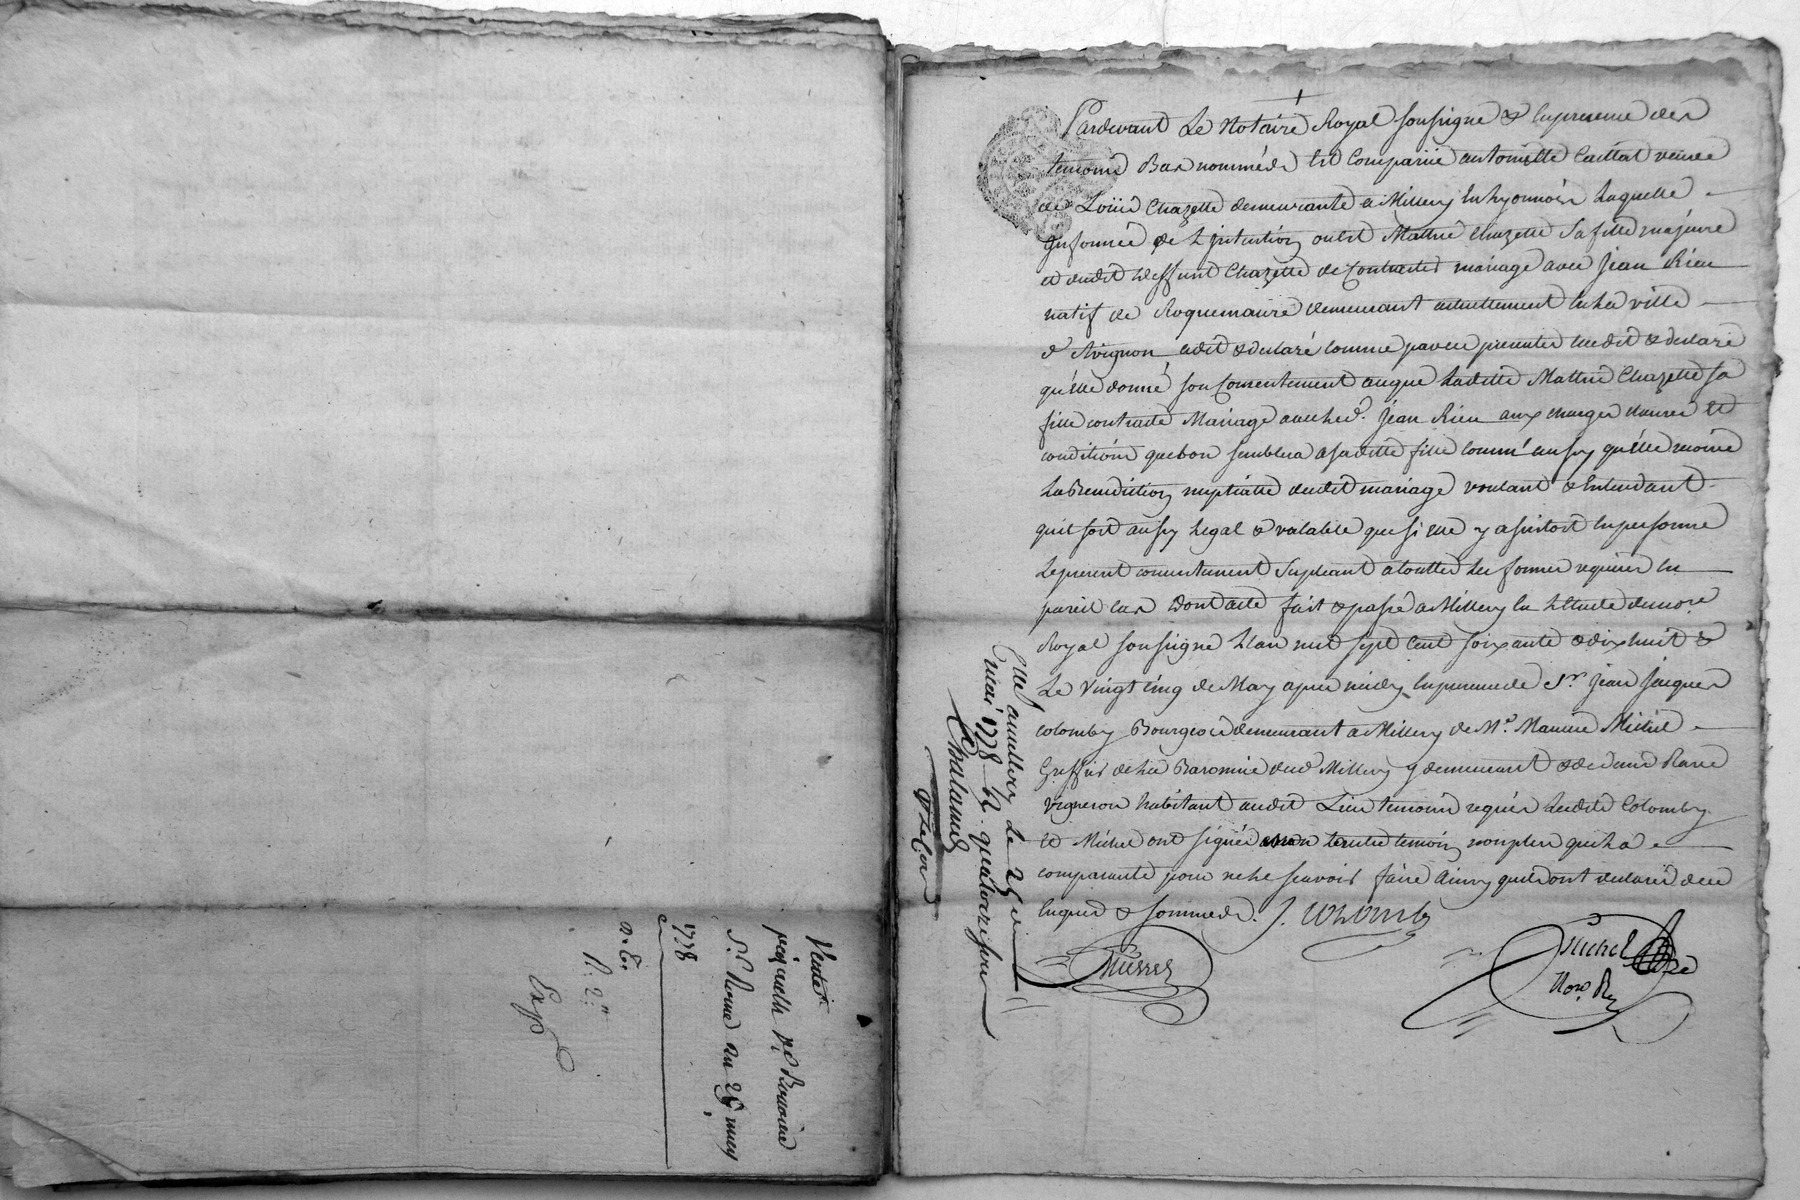 Vente
par Me Antoine
Sr. Rome du 25 may
1778
R. 2
Exp
Pardevant Le Notaire Royal soussigné & en presence des
temoins Bas nommés est Comparüe antoinette Caillat veuve
de Loüis Chazette demeurante a Millery en Lyonnois Laquelle
Informée de L'jntention ou est Mathie Chazette Sa fille majeure
et dudit deffunt Chazette de Contracter mariage avec Jean Rieu
natif de Roquemaure demeurant actuellement en La ville
d'Avignon a dit & declaré comme par ces presentes elle dit & declare
qu'elle donne son Consentement a ce que Ladite Mathie Chazette sa
fille contracte Mariage avec led. Jean Rieu aux charges clauses et
conditions que bon semblera a sadite fille comme aussy qu'elle recoive
La Benediction nuptialle dudit mariage voulant & Entendant
qu'il soit aussy Legal & valable que si elle y assistoit en personne
Le present consentement Supleant a toutes Les formes requises en
pareil cas Dont acte fait & passé a Millery en L'Etude du nore
Royal soussigné L'an mil sept cent soixante & dix huit &
Le vingt cinq de May apres midy en presence de Sr. Jean Jacques
colomby Bourgeois demeurant a Millery de Me. Maurice Michel
Greffier de La Baronnie dud. Millery y demeurant & de
vigneron habitant audit Lieu temoins requis Lesdits Colomby
et Michel ont signés non Lautre temoin non plus que La
comparante pour ne Le scavoir faire Ainsy qu'ils ont declaré de ce
enquis & sommés. J. Colomby
Michel
Nore. Rl
Cllé a millery Le 29
mai 1778 R. quatorze sous
Chaland